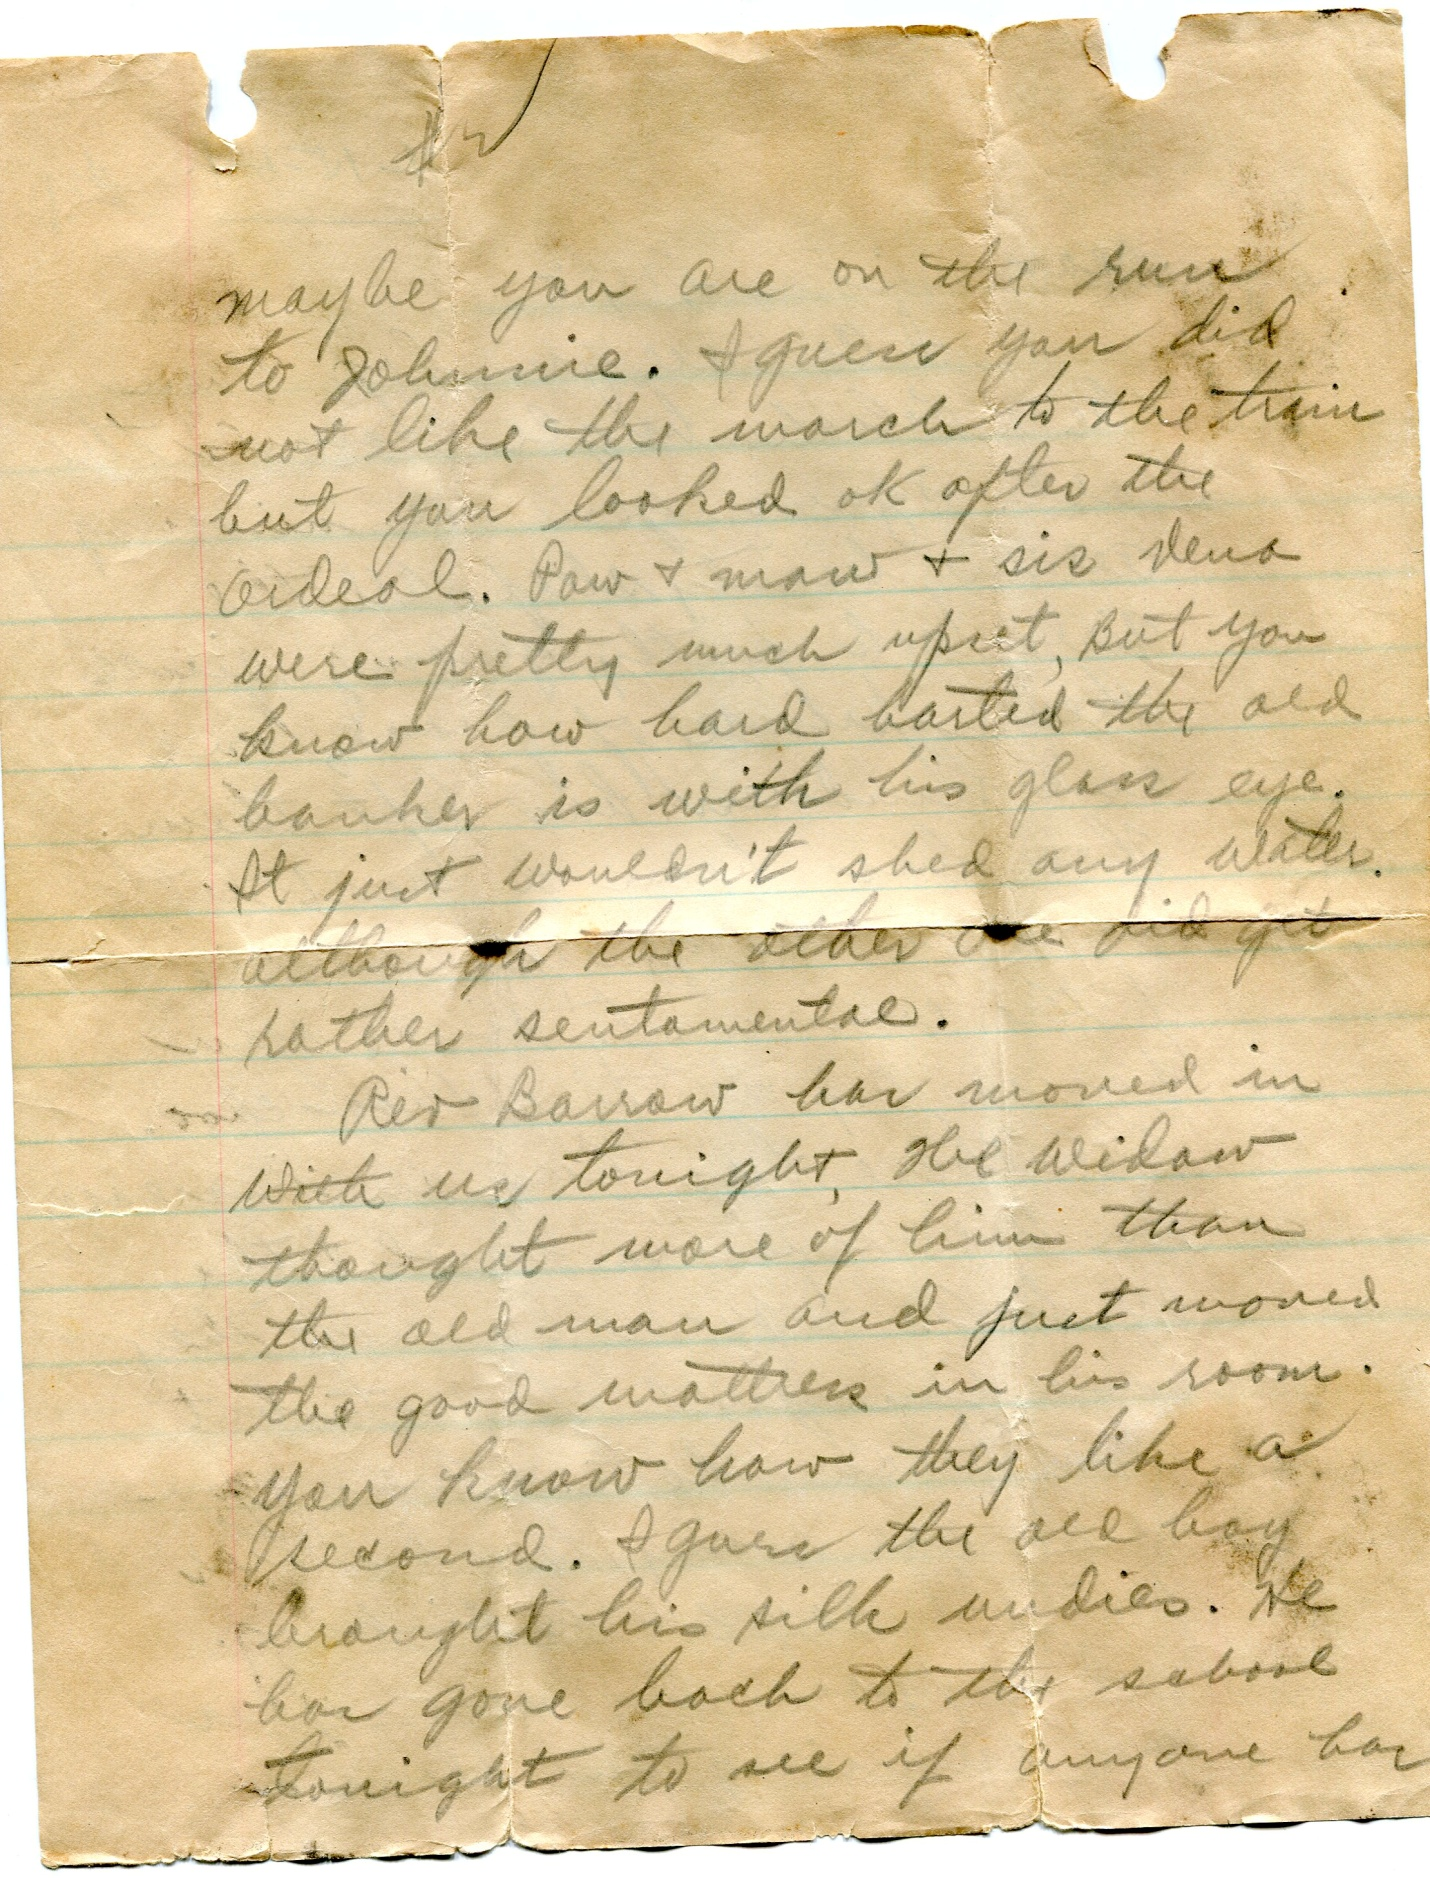 #2
maybe you are on the run
to Johnnie. I guess you did
not like the march to the train
but you looked ok after the
ordeal. Paw + maw + sis Vena
were pretty much upset, But you
know how hard harted the old
banker is with his glass eye.
It just wouldn't shed any water.
although the other one did get
rather sentamental.
Rev Barrow has moved in
with us tonight, The Widow
thought more of him than
the old man and just moved
the good mattress in his room.
You know how they like a
second. I guess the old boy
brought his silk undies. He
has gone back to the school
tonight to see if anyone has